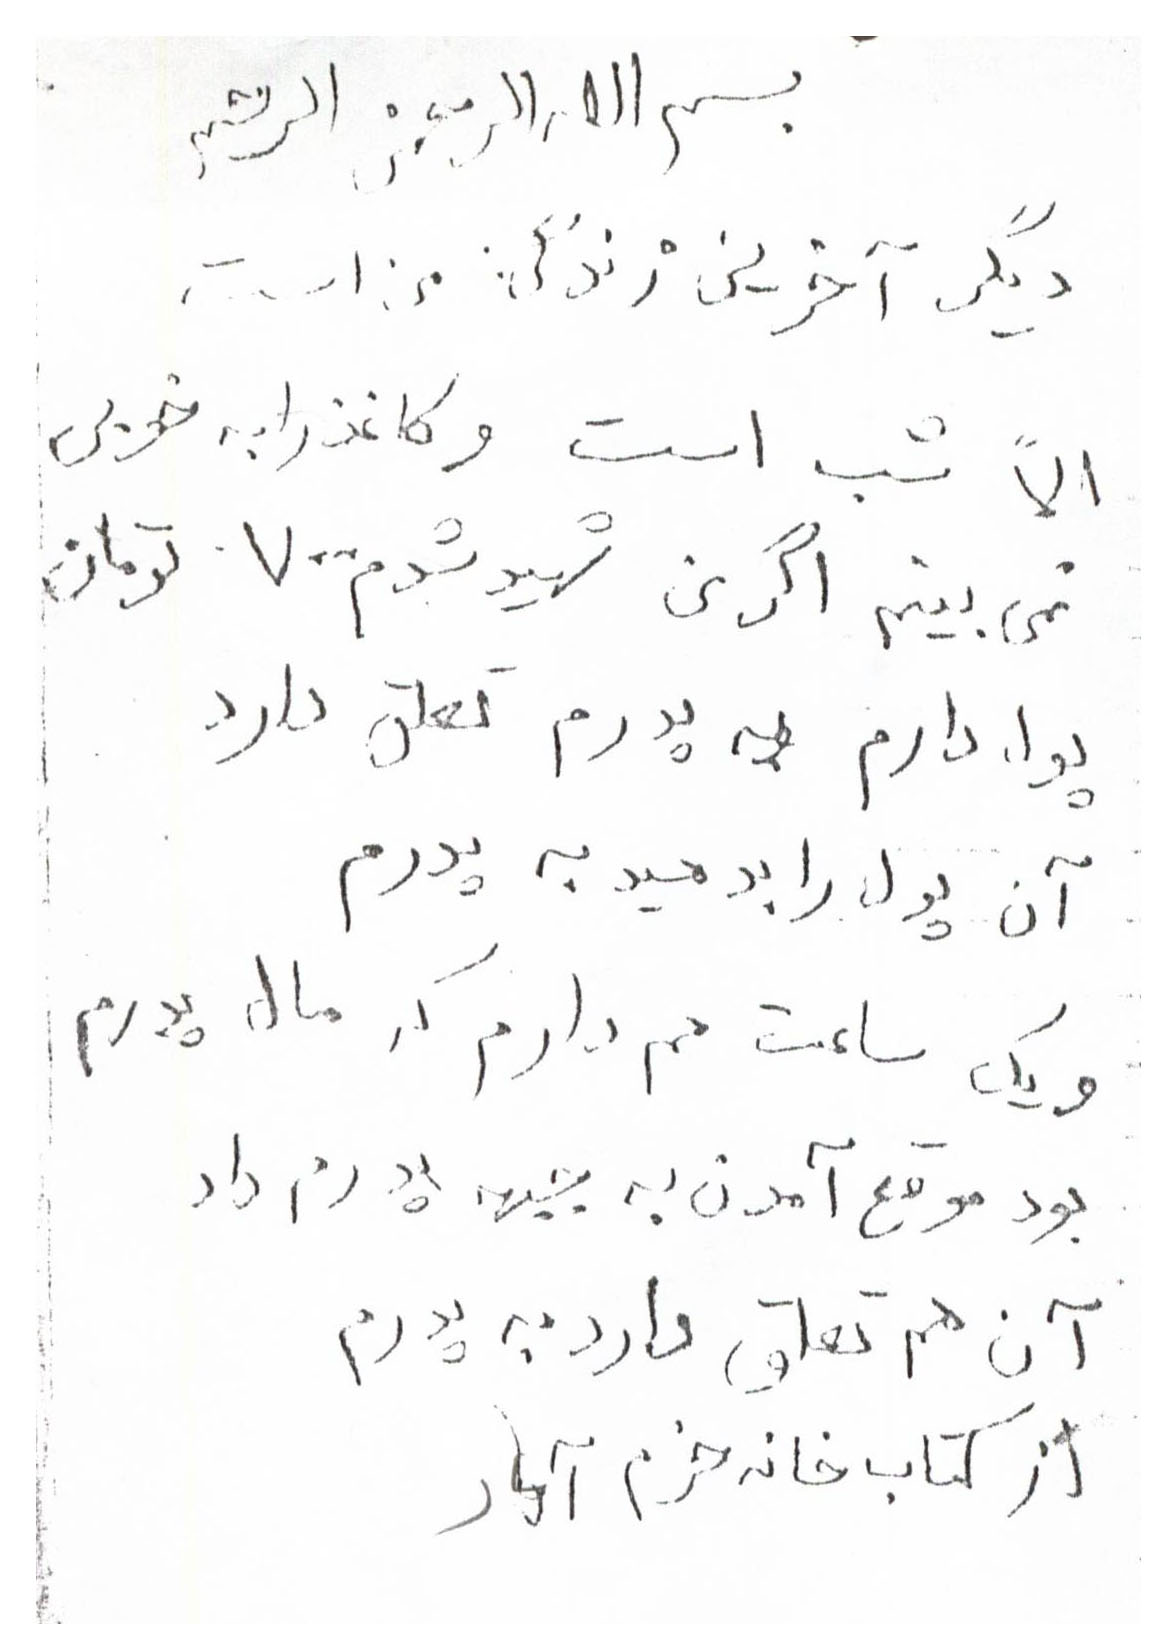 بسم الله الرحمن الرحیم
دیگر آخرین زندگی من است
الاً شب است و کاغذ را به خوبی
نمی بینم اگر من شهید شدم ۷۰۰ تومان
پول دارم به پدرم تعلق دارد
آن پول را بدهید به پدرم
و یک ساعت هم دارم که مال پدرم
بود موقع آمدن به جبهه پدرم داد
آن هم تعلق دارد به پدرم
از کتاب خانه خرم آباد